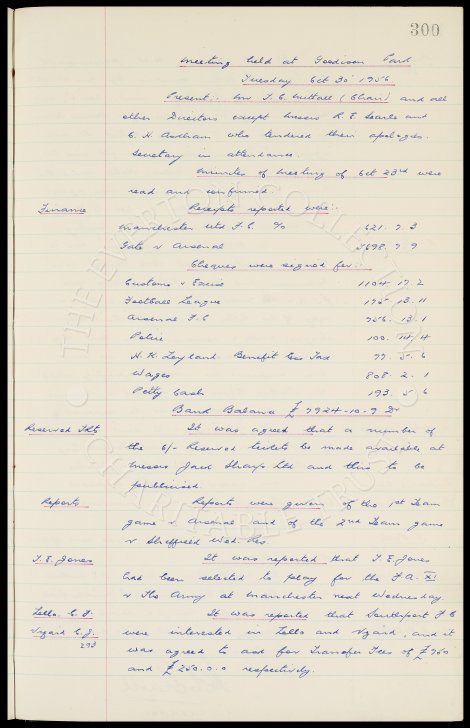 300
Meeting held at Goodison Park
Tuesday Oct 30th 1956.
Present:- Mr T. C. Nuttall (Chair) and all
other Directors except Messrs R. E. Searle and
C. H. Askham who tendered their apologies.
Secretary in attendance.
Minutes of Meeting of Oct 23rd were
read and confirmed.
Finance Receipts reported were:-
Manchester Utd F.C. % 621. 7. 3
Gate v Arsenal 7. 9
Cheques were signed for:-
Customs & Excise 1104. 17. 2
Football League 175. 13. 11
Arsenal F.C 756. 13. 1
Police 100. 14/4
H. K. Leyland. Benefit less Tax 77. 5. 6
Wages 808. 2. 1
Petty Cash 193. 5 6
Bank Balance £ 7924-10-9 Dr
Reserved Tkts It was agreed that a number of
the 6/- Reserved tickets be made available at
Messrs Jack Sharps Ltd and this to be
publicised.
Reports Reports were given of the 1st Team
game v Arsenal and of the 2nd Team game
v Sheffield Wed. Res.
T. E. Jones It was reported that T. E. Jones
had been selected to play for the F.A. XI
v The Army at Manchester next Wednesday.
Lello. C. F. It was reported that Southport F C
Vizard C. J. were interested in Lello and Vizard, and it
293 was agreed to ask for Transfer Fees of £750
and £250.0.0 respectively.
THE EVERTON COLLECTION
CHARITABLE TRUST